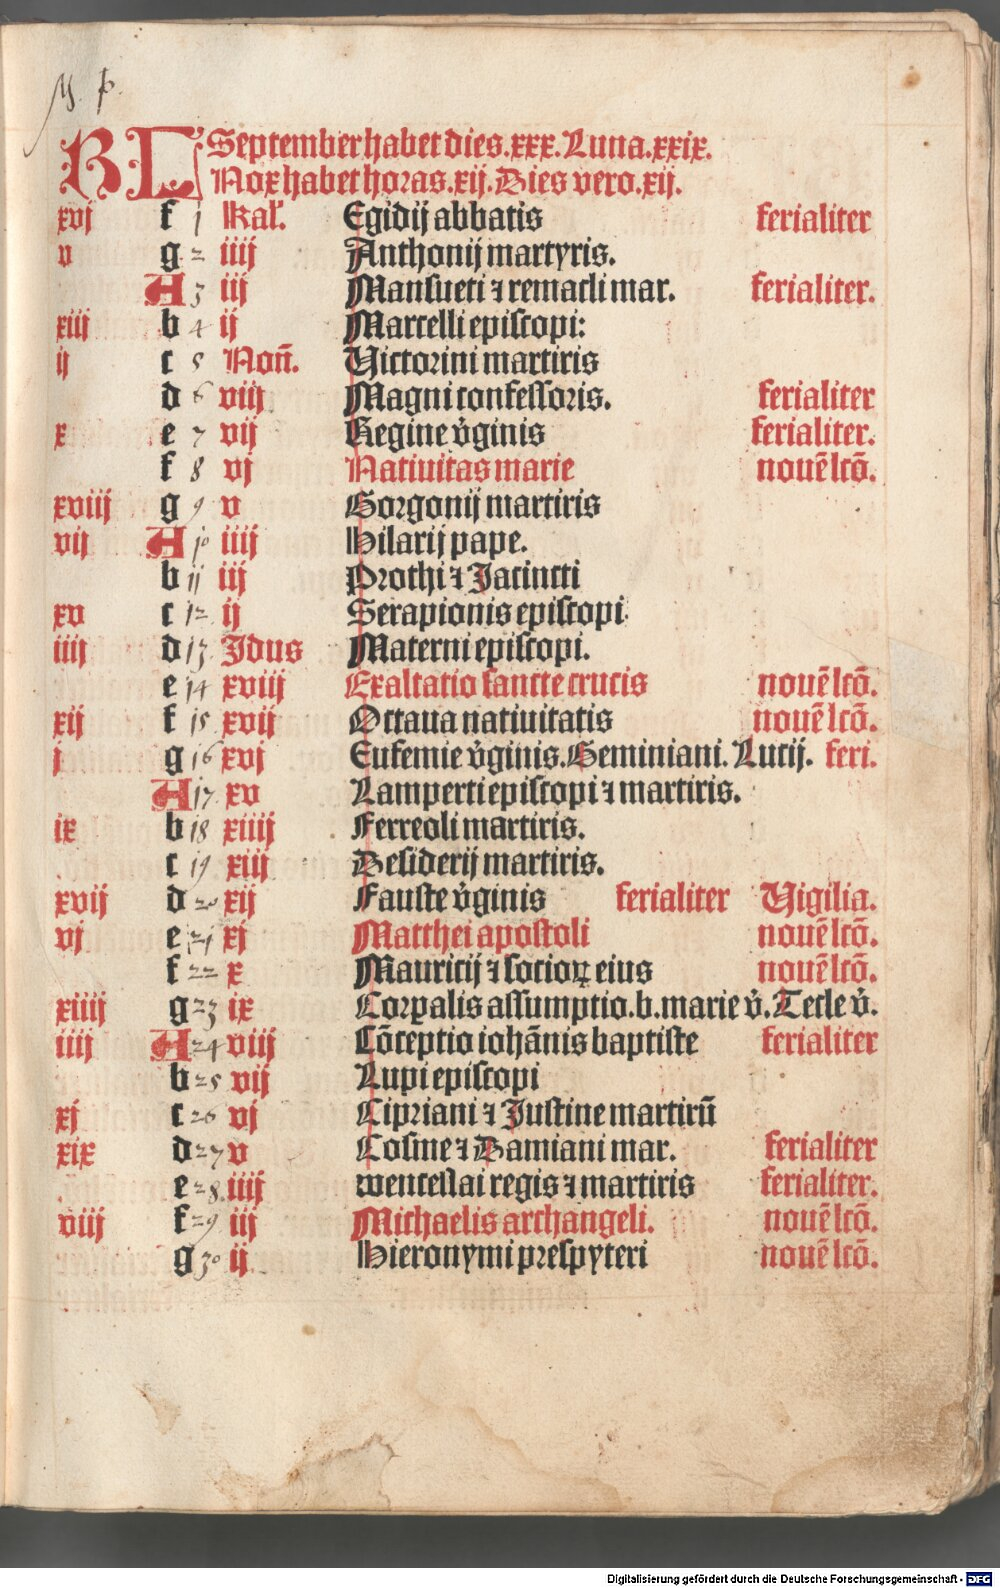 M. p.
KL September habet dies.xxx.Luna.xxix.
Nox habet horas.xij.Dies vero.xij.
xvj f 1 Kal'. Egidij abbatis ferialiter
v g 2 iiij Anthonij martyris.
A 3 iij Mansueti ⁊ remacli mar. ferialiter.
xiij b 4 ij Marcelli episcopi:
ij c 5 Non̄. Victorini martiris
d 6 viij Magni confessoris. ferialiter
x e 7 vij Regine v̄ginis ferialiter.
f 8 vj Natiuitas marie nouē lcō.
xviij g 9 v Gorgonij martiris
vij A 10 iiij Hilarij pape.
b 11 iij Prothi ⁊ Jacincti
xv c 12 ij Serapionis episcopi
iiij d 13 Idus Materni episcopi.
e 14 xviij Exaltatio sancte crucis nouē lcō.
xij f 15 xvij Octaua natiuitatis nouē lcō.
j g 16 xvj Eufemie v̄ginis.Geminiani. Lucij. feri.
A 17 xv Lamperti episcopi ⁊ martiris.
ix b 18 xiiij Ferreoli martiris.
c 19 xiij Desiderij martiris.
xvij d 20 xij Fauste v̄ginis ferialiter Vigilia.
vj e 21 xj Matthei apostoli nouē lcō.
f 22 x Mauricij ⁊ socioꝝ eius nouē lcō.
xiiij g 23 ix Corꝑalis assumptio.b.marie v̄.Tecle v̄.
iiij A 24 viij Cōceptio iohānis baptiste ferialiter
b 25 vij Lupi episcopi
xj c 26 vj Cipriani ⁊ Justine martirū
xix d 27 v Cosme ⁊ Damiani mar. ferialiter
e 28 iiij wenceslai regis ⁊ martiris ferialiter.
viij f 29 iij Michaelis archangeli. nouē lcō.
g 30 ij Hieronymi prespyteri nouē lcō.
Digitalisierung gefördert durch die Deutsche Forschungsgemeinschaft - DFG